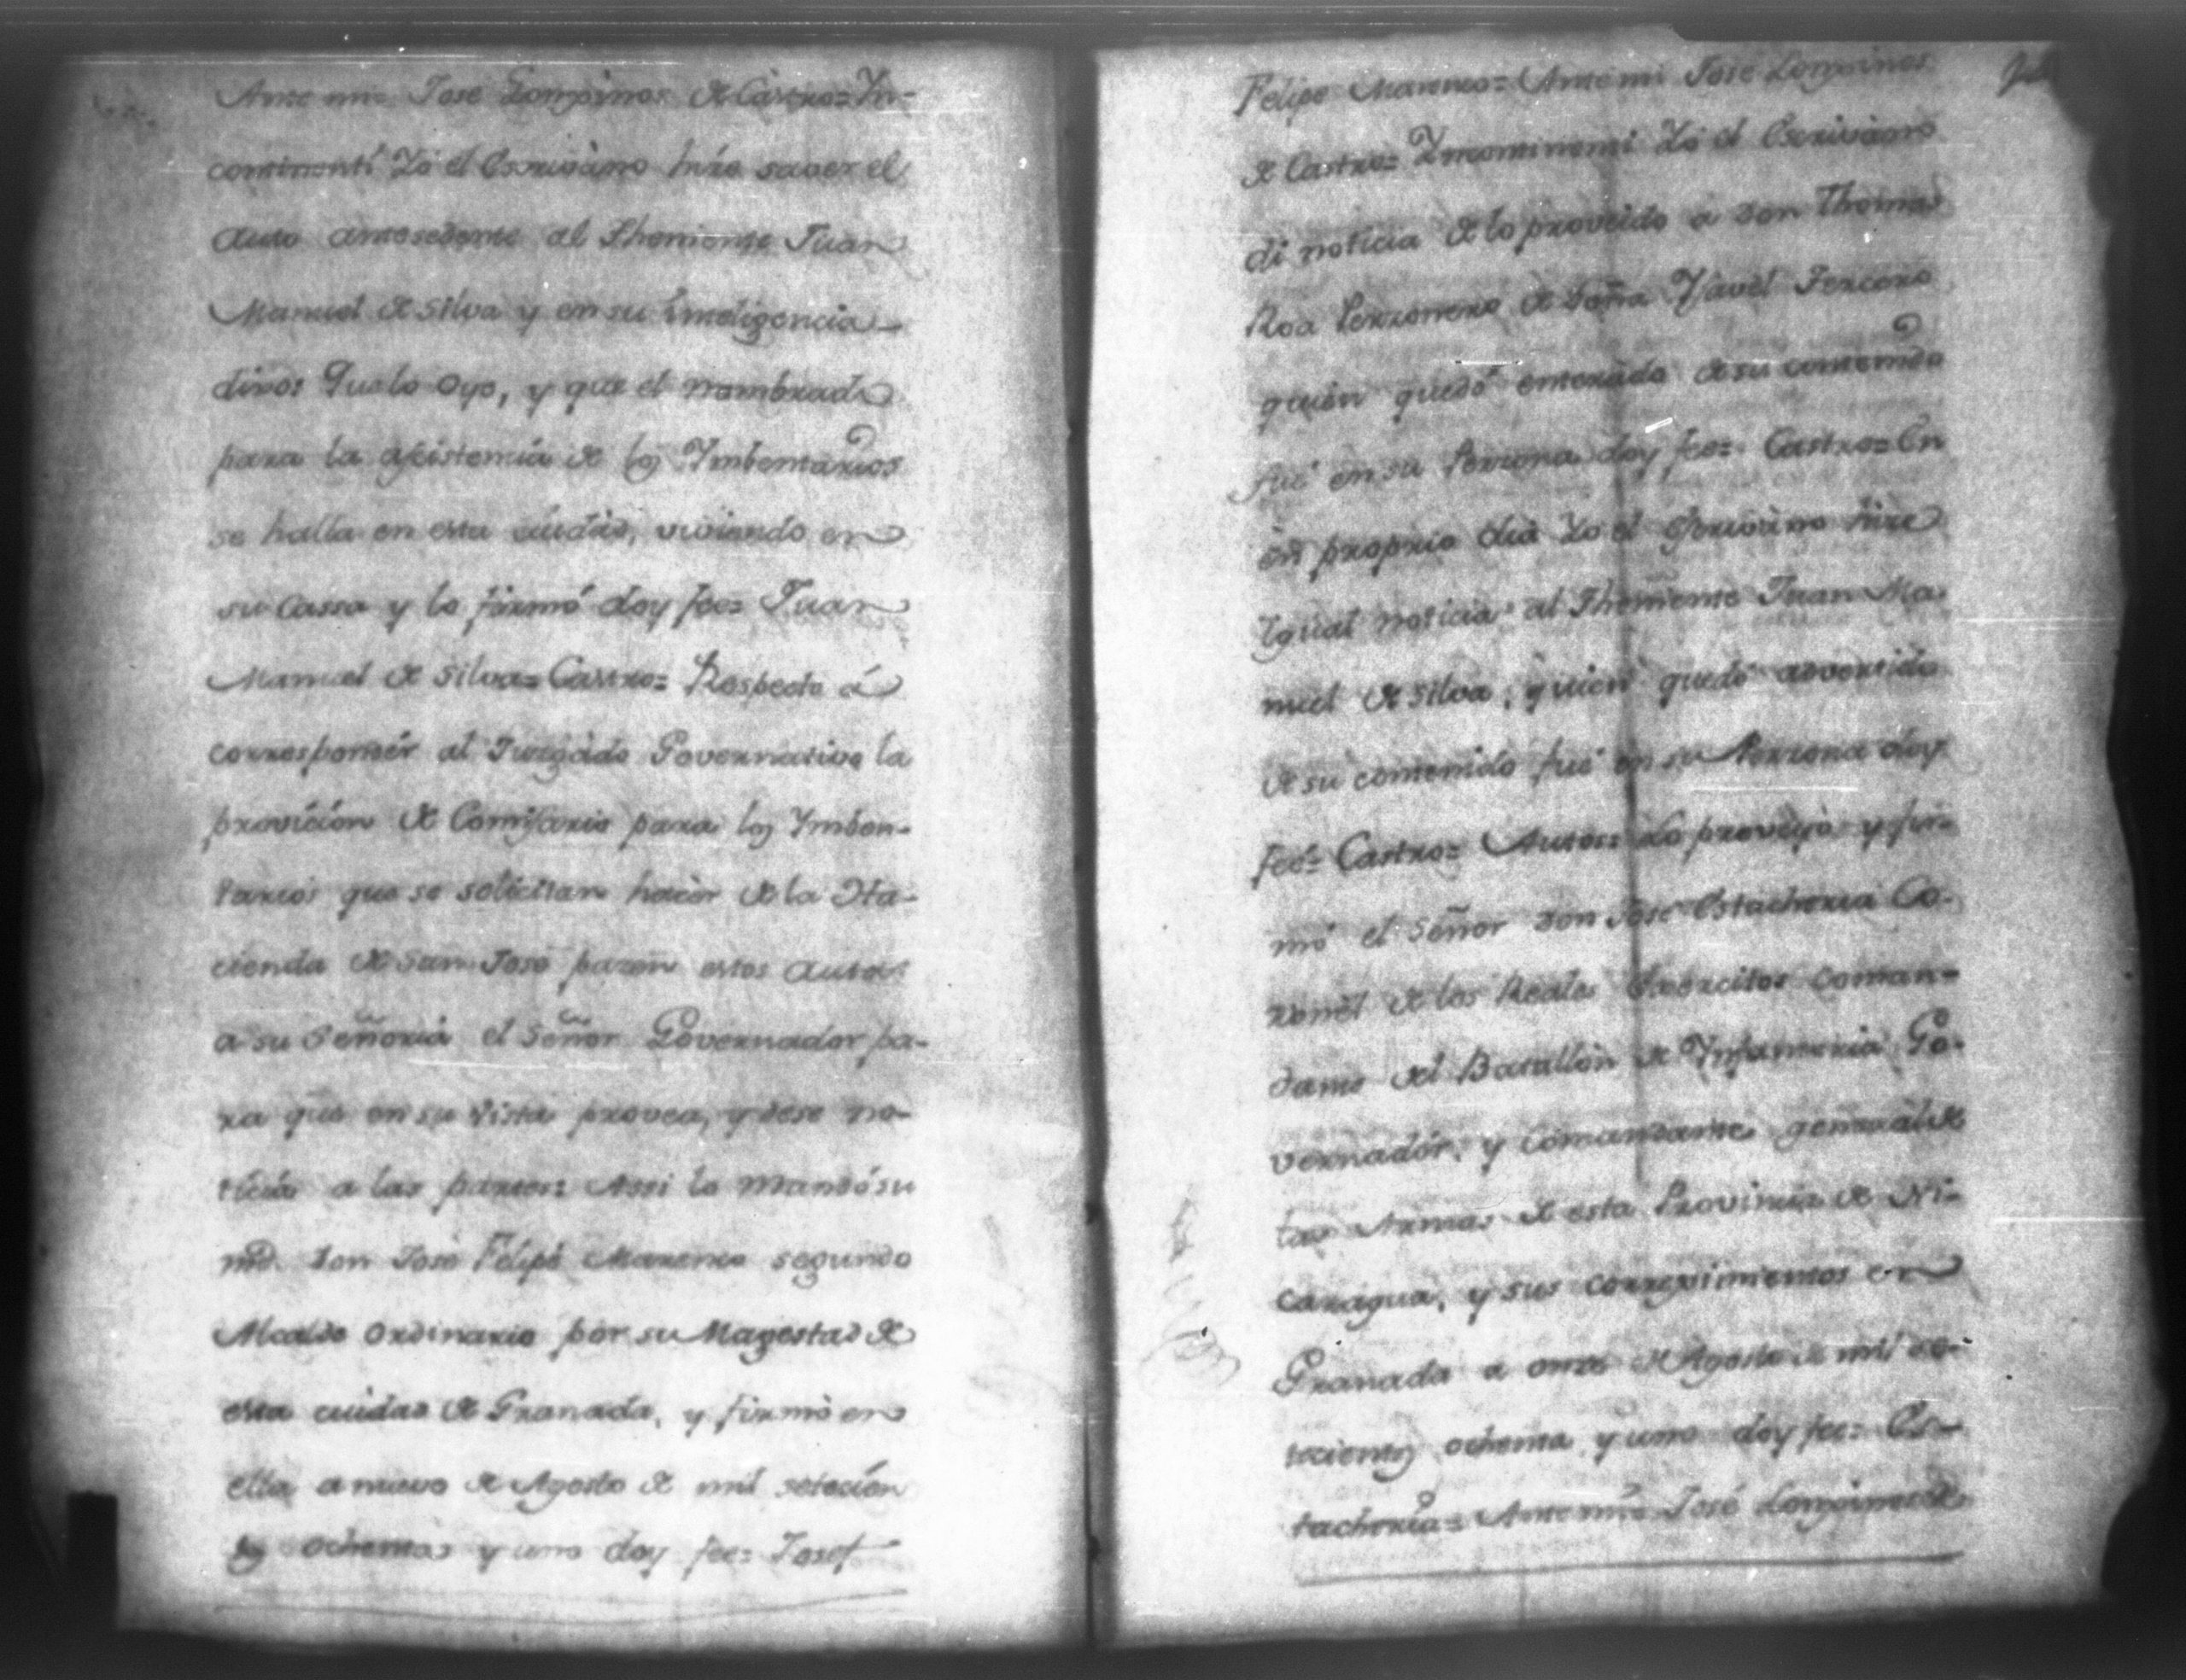 Ante mi: Jose Lompinos de Castro= Yn-
continenti Yo el Escrivano hize saver el
Auto antesedente al Theniente Juan
Manuel de Silva y en su Ynteligencia
dixo: Que lo oyo, y que el nombrado
para la asistencia de los Ymbentarios
se halla en esta ciudad, viviendo en
su Cassa y lo firmó doy fee= Juan
Manuel de Silva= Castro= Respecto á
corresponder al Juzgado Governativo la
provicion de Comisario para los Ymben-
tarios que se solicitan hacer de la Ha-
cienda de San José pacen estos Autos
a su Señoria el Señor Governador pa-
ra que en su vista provea, y dese no-
ticia a las partes: Assi lo mandó su
md. Don José Felipe Marenco segundo
Alcalde ordinario por su Magestad de
esta cuidad de Granada, y firmó en
ella a nueve de Agosto de mil setecien
tos ochentas y uno doy fee= Josef
Felipe Marenco= Ante mi José Lompinos
de Castro= Yncontinenti Yo el Escrivano
di noticia de lo proveido a Don Thomas
Roa Perzonero de Doña Ysavel
quien quedó enterado de su contenido
fué en su Perzona doy fee= Castro= En
en proprio dia Yo el Escrivano hize
Ygual noticia al Theniente Juan Ma-
nuel de Silva, quien quedó advertido
de su contenido fué en su Perzona doy
fee= Castro= Autos: Lo proveyó y fir-
mó el Señor Don José Estacheria Co-
ronel de los Reales Exercitos Coman-
dante del Batallon de Ynfanteria Go-
vernador, y Comandante general de
las Armas de esta Provincia de Ni-
caragua, y sus correximientos en
Granada a onze de Agosto de mil se-
tecientos ochenta y uno doy fee= Es-
tacheria= Ante mi: José Lompinos de